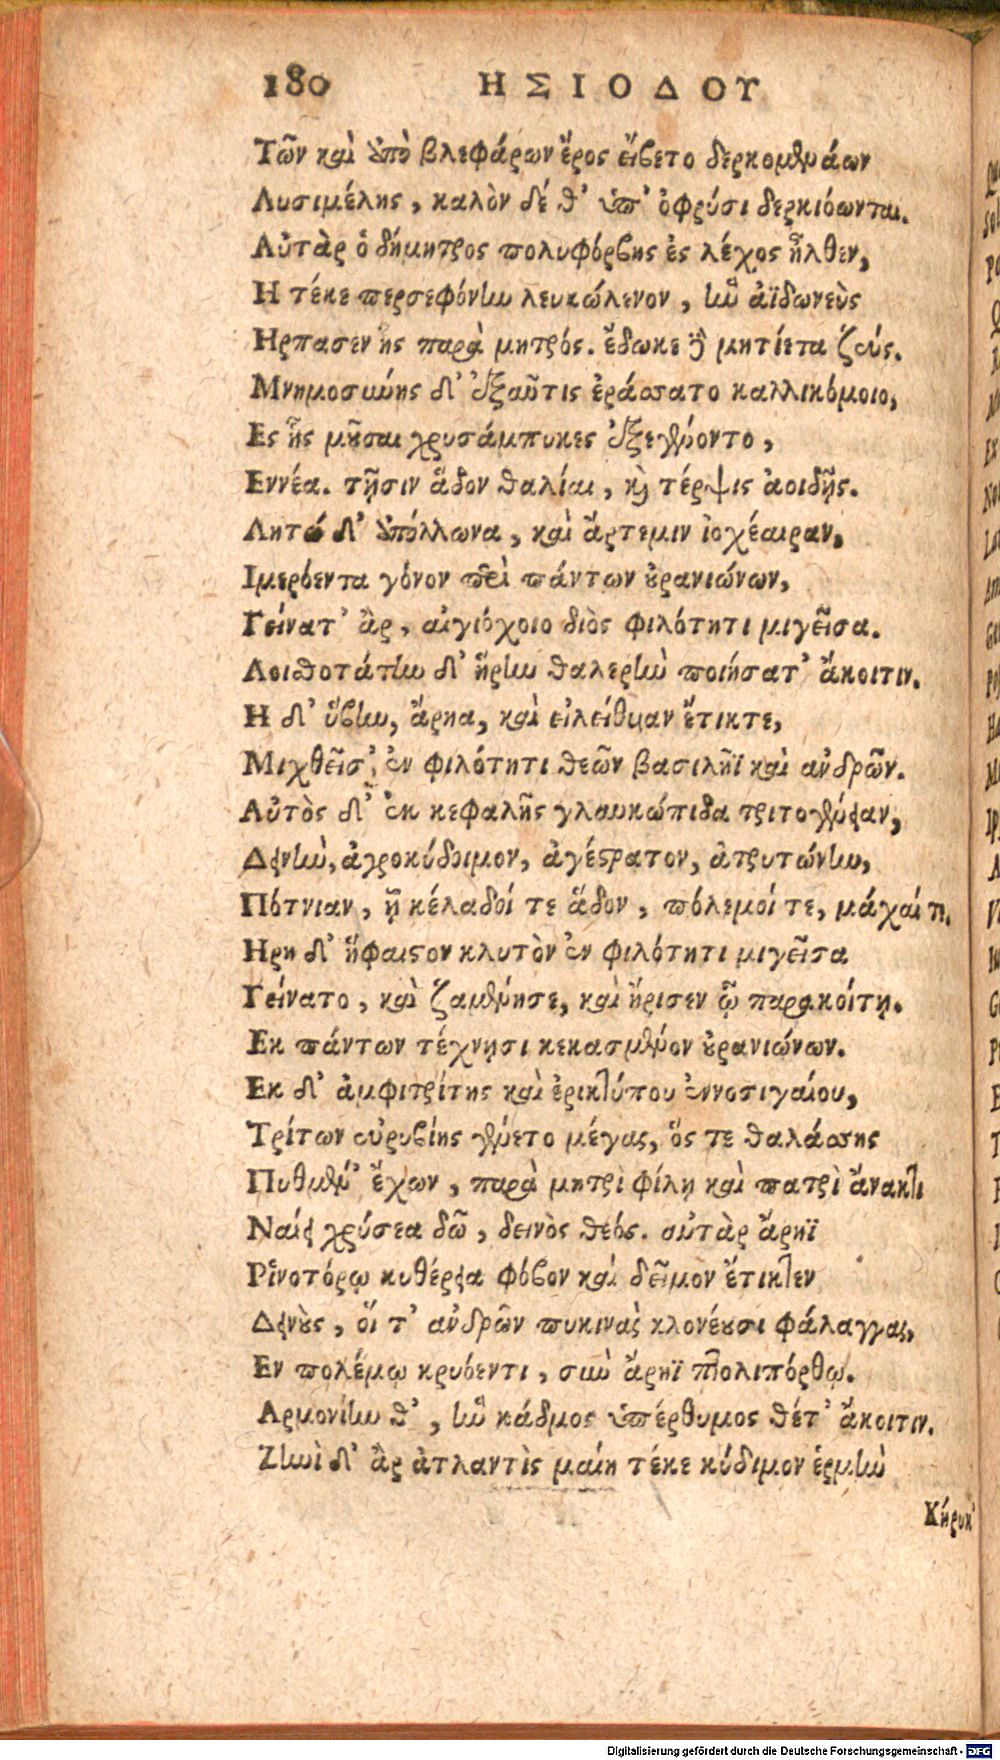 180 ΗΣΙΟΔΟΥ
Τῶν καὶ ἀπὸ βλεφάρων ἔρος εἴβετο δερκομενάων
Λυσιμέλης, καλὸν δέ θ' ὑπ' ὀφρύσι δερκιόωνται.
Αὐτὰρ ὁ δήμητρος πολυφόρβης ἐς λέχος ἦλθεν,
Η τέκε περσεφόνην λευκώλενον, ἣν ἀϊδωνεὺς
Ηρπασεν ἧς παρὰ μητρός. ἔδωκε δὲ μητίετα ζεύς.
Μνημοσύνης δ' ἐξαῦτις ἐράσσατο καλλικόμοιο,
Ες ἧς μοῦσαι χρυσάμπυκες ἐξεγένοντο,
Εννέα. τῇσιν ἅδον θαλίαι, καὶ τέρψις ἀοιδῆς.
Λητώ δ' ἀπόλλωνα, καὶ ἄρτεμιν ἰοχέαιραν,
Ιμερόεντα γόνον περὶ πάντων οὐρανιώνων,
Γείνατ' ἂρ, αἰγιόχοιο διὸς φιλότητι μιγεῖσα.
Λοισθοτάτην δ' ἥρην θαλερὴν ποιήσατ' ἄκοιτιν.
Η δ' ἥβην, ἄρηα, καὶ εἰλείθυιαν ἔτικτε,
Μιχθεῖσ' ἐν φιλότητι θεῶν βασιλῆϊ καὶ ἀνδρῶν.
Αὐτὸς δ' ἐκ κεφαλῆς γλαυκώπιδα τριτογένειαν,
Δεινὴν, ἀγροκύδοιμον, ἀγέστρατον, ἀτρυτώνην,
Πότνιαν, ᾗ κέλαδοί τε ἅδον, πόλεμοί τε, μάχαί τε.
Ηρη δ' ἥφαιστον κλυτὸν ἐν φιλότητι μιγεῖσα
Γείνατο, καὶ ζαμένησε, καὶ ἤρισεν ᾧ παρακοίτῃ.
Εκ πάντων τέχνῃσι κεκασμένον οὐρανιώνων.
Εκ δ' ἀμφιτρίτης καὶ ἐρικτύπου ἐννοσιγαίου,
Τρίτων εὐρυβίης γένετο μέγας, ὅς τε θαλάσσης
Πυθμέν' ἔχων, παρὰ μητρὶ φίλῃ καὶ πατρὶ ἄνακτι
Ναίει χρύσεα δῶ, δεινὸς θεός. αὐτὰρ ἄρηϊ
Ρινοτόρῳ κυθέρεια φόβον καὶ δεῖμον ἔτικτεν
Δεινοὺς, οἵ τ' ἀνδρῶν πυκινὰς κλονέουσι φάλαγγας,
Εν πολέμῳ κρυόεντι, σὺν ἄρηϊ πτολιπόρθῳ.
Αρμονίην θ', ἣν κάδμος ὑπέρθυμος θέτ' ἄκοιτιν.
Ζηνὶ δ' ἂρ ἀτλαντὶς μαίη τέκε κύδιμον ἑρμῆν
Κήρυκ'
Digitalisierung gefördert durch die Deutsche Forschungsgemeinschaft - DFG